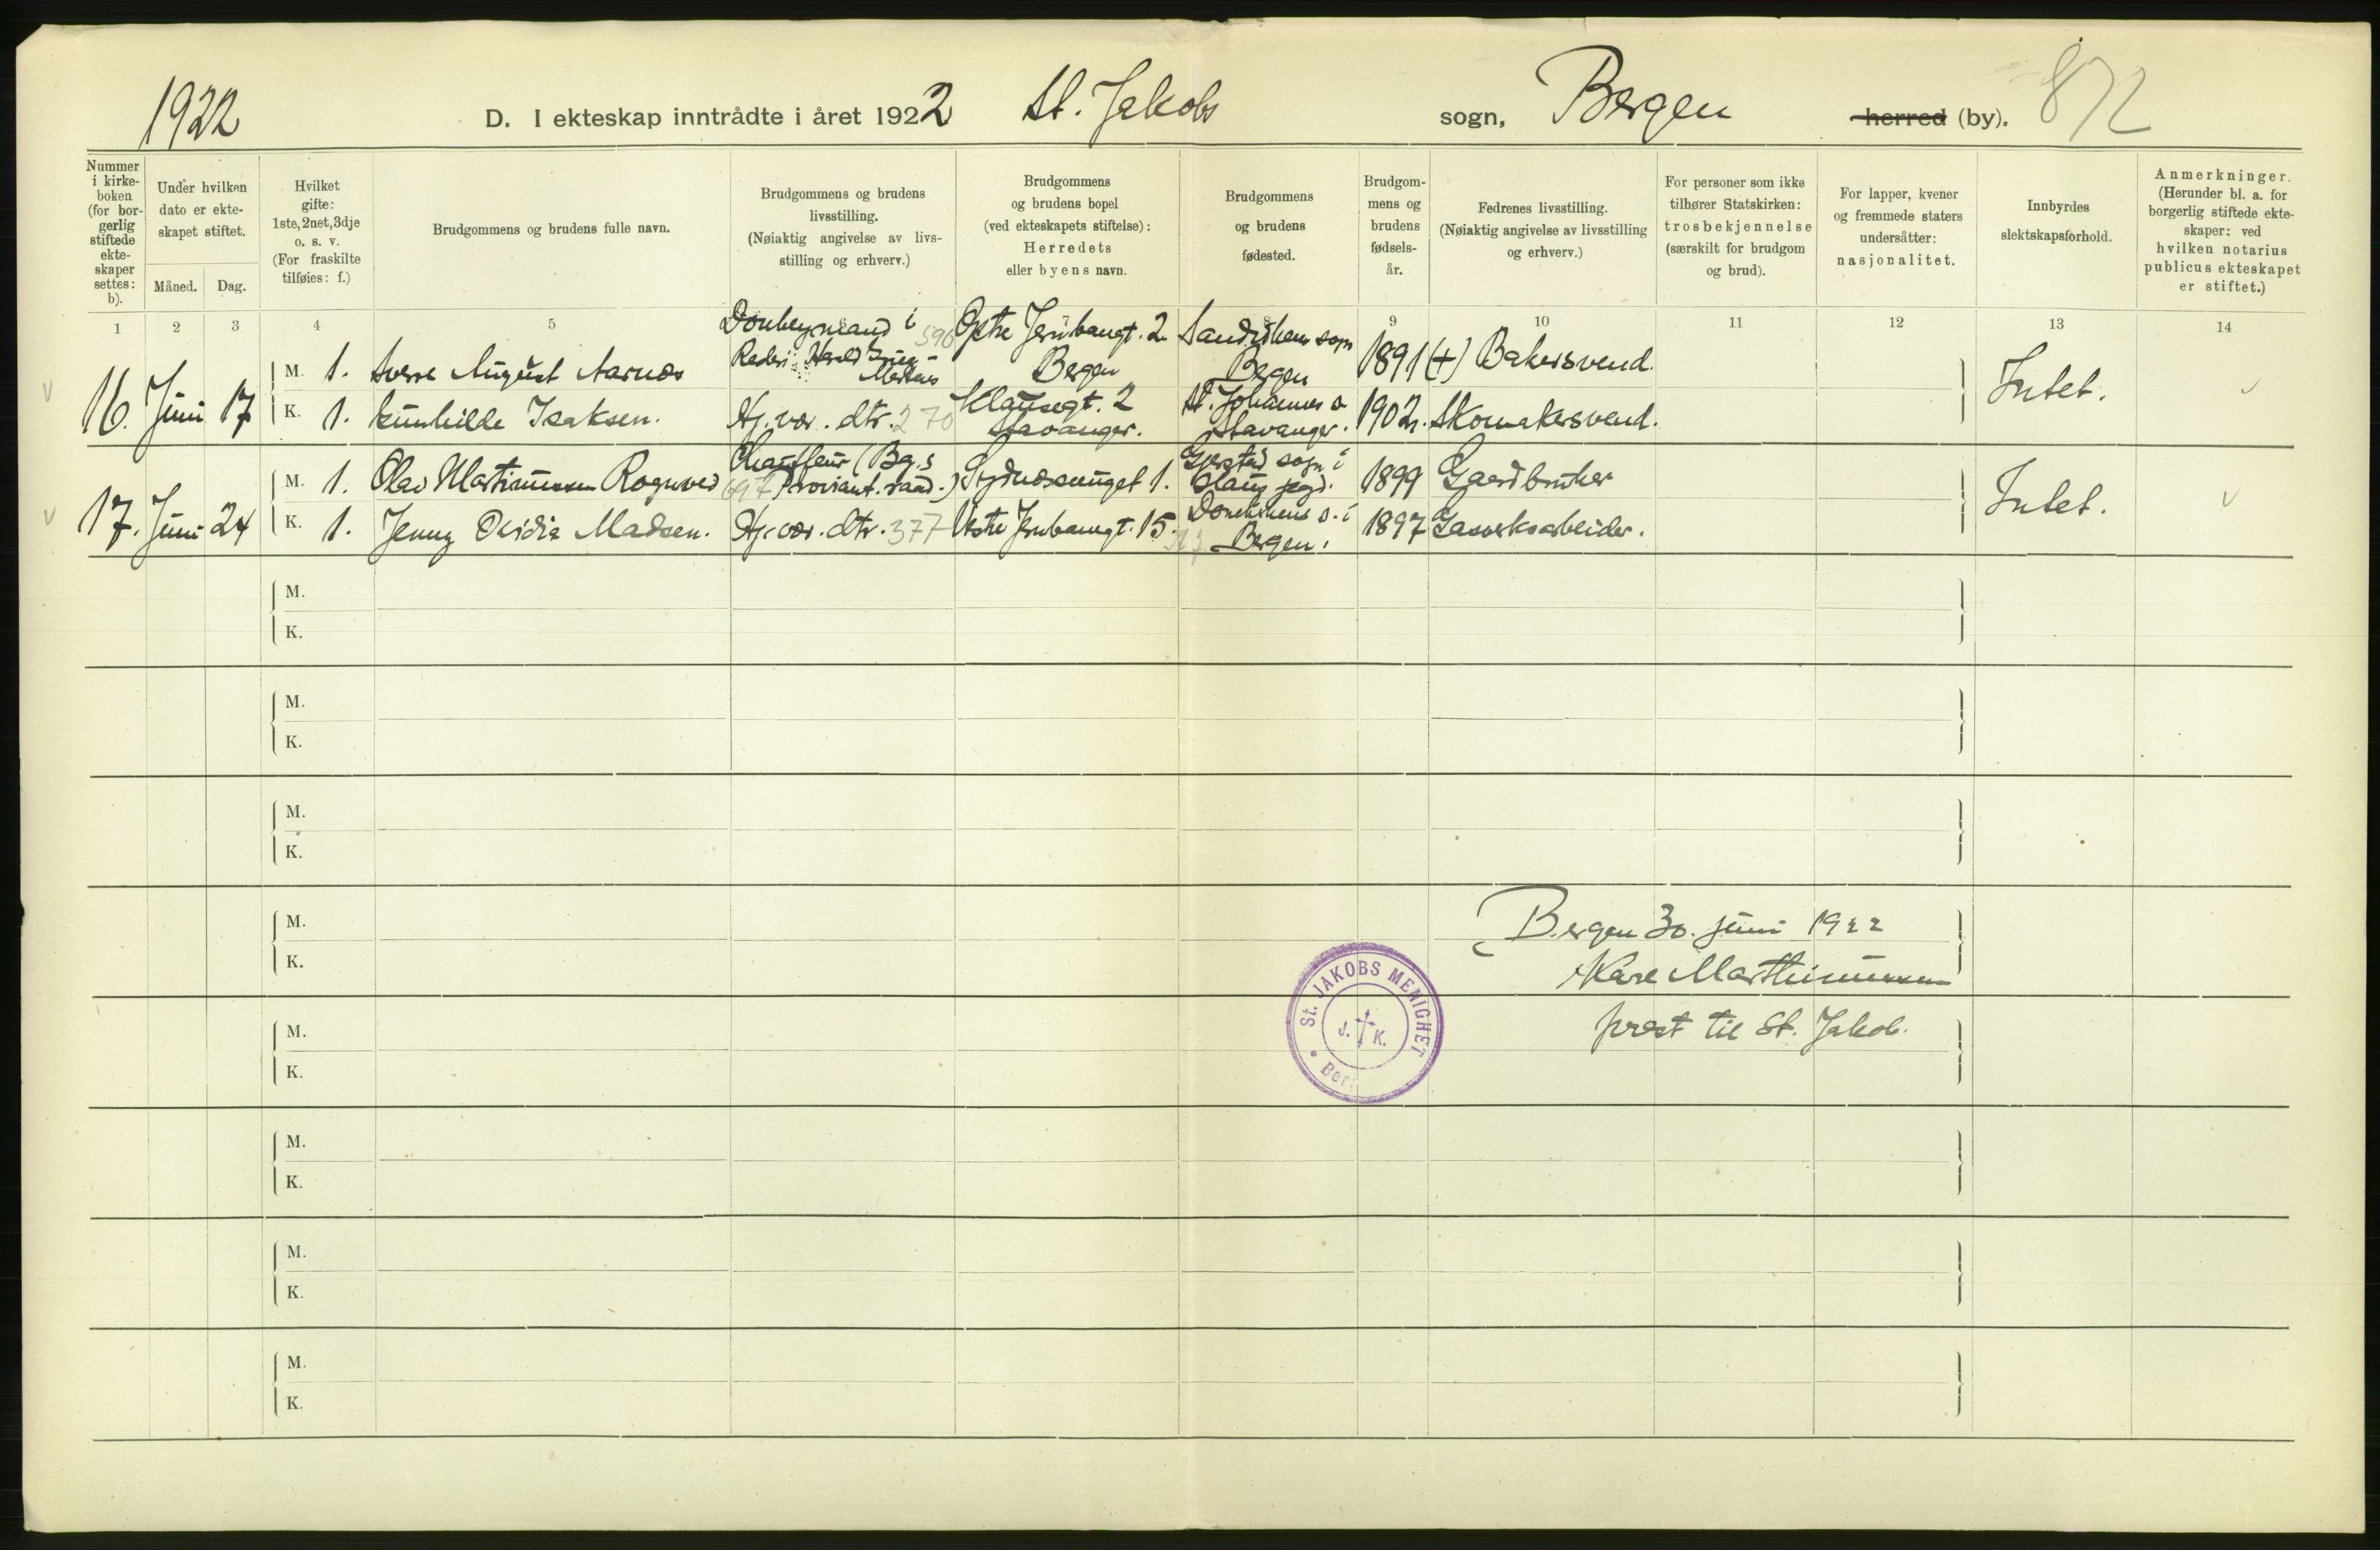 1922 D. I ekteskap inntrådte i året 1922 St. Jakobs sogn, Bergen herred (by). 872
Nummer i kirkeboken (for borgerlig stiftede ekteskaper settes: b).
Under hvilken dato er ekteskapet stiftet.
Måned. Dag.
Hvilket gifte: 1ste, 2net, 3dje o. s. v. (For fraskilte tilføies: f.)
Brudgommens og brudens fulle navn.
Brudgommens og brudens livsstilling. (Nøiaktig angivelse av livsstilling og erhverv.)
Brudgommens og brudens bopel (ved ekteskapets stiftelse): Herredets eller byens navn.
Brudgommens og brudens fødested.
Brudgommens og brudens fødselsår.
Fedrenes livsstilling. (Nøiaktig angivelse av livsstilling og erhverv.)
For personer som ikke tilhører Statskirken: trosbekjennelse (særskilt for brudgom og brud).
For lapper, kvener og fremmede staters undersåtter: nasjonalitet.
Innbyrdes slektskapsforhold.
Anmerkninger. (Herunder bl. a. for borgerlig stiftede ekteskaper: ved hvilken notarius publicus ekteskapet er stiftet.)
1 2 3 4 5 6 7 8 9 10 11 12 13 14
16. Juni 17
M. 1. Sverre August Aarnæs Donkeymand i Rederi Harald 590 Østre Jernbanegt. 2 Bergen Sandvikens sogn Bergen 1891 (+) Bakersvend. Intet.
K. 1. Gunhilde Isaksen. Hj. vær. dtr. 270 Klausegt. 2 Stavanger. St. Johannes s. Stavanger. 1902. Skomakersvend.
17. Juni 24
M. 1. Olav Martinussen Rognved Chauffeur (Bg.s Proviant.raad.) 697 Sydnessmuget 1. Gjerstad sogn i Haus pgd. 1899 Gaardbruker Intet.
K. 1. Jenny Ovidia Madsen. Hj. vær. dtr. 377 Vestre Jernbanegt. 15. Domkirkens s. i Bergen. 1897 Gasverksarbeider.
M.
K.
M.
K.
M.
K.
M.
K.
Bergen 30. juni 1922
Kåre Marthinussen
prest til St. Jakob.
St. JAKOBS MENIGHET
J. K.
Ber
M.
K.
M.
K.
M.
K.
M.
K.